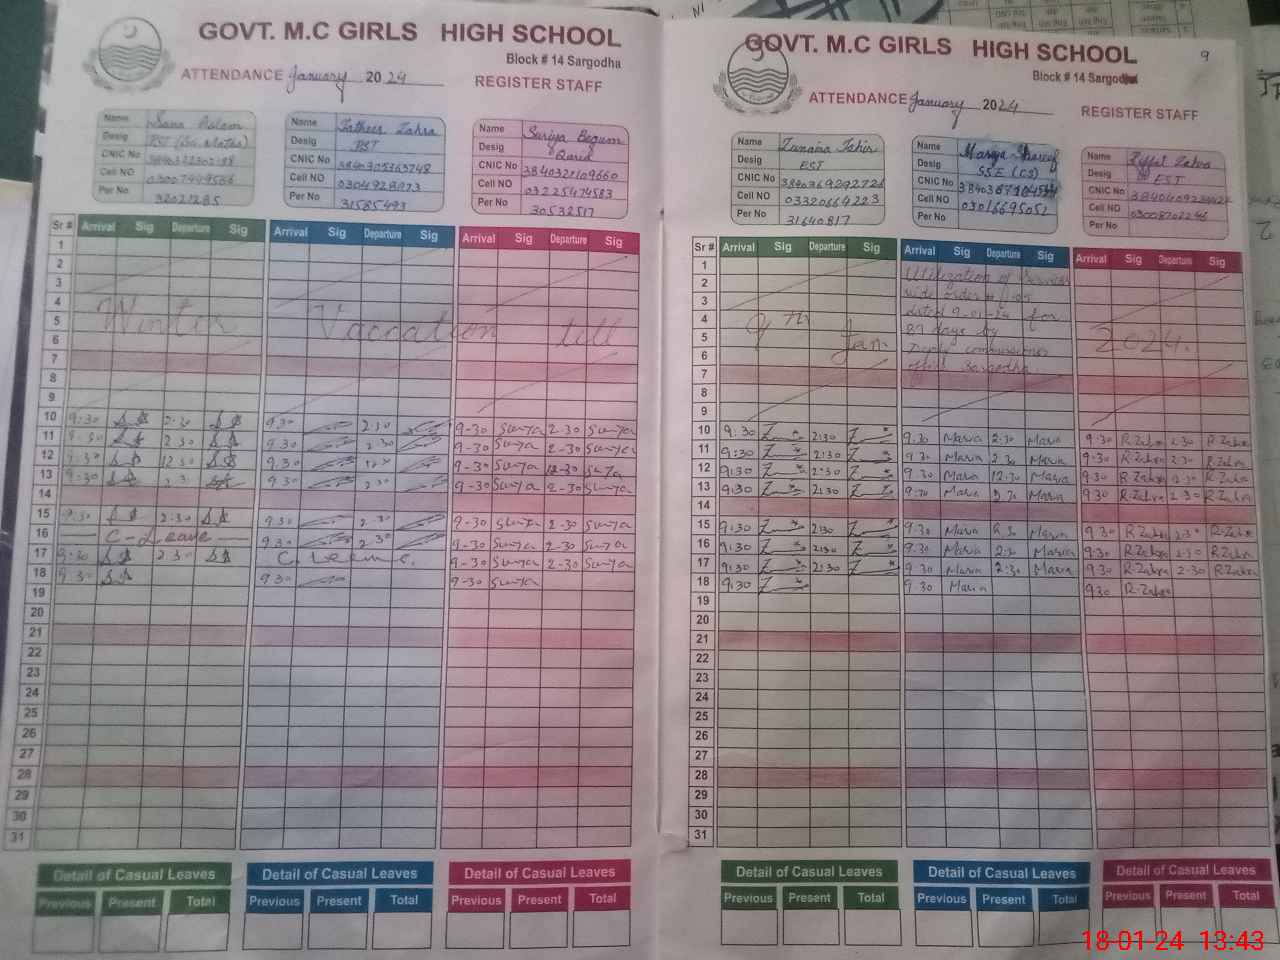 GOVT. M.C GIRLS HIGH SCHOOL
Block # 14 Sargodha
ATTENDANCE January 2024 REGISTER STAFF
Name Sana Aslam
Desig
CNIC No
Cell NO 03007499586
Per No 32021285
Name Zahra
Desig PST
CNIC No 3840305363748
Cell NO
Per No 31585493
Name Suriya Begum
Desig Qaria
CNIC No 3840321109660
Cell NO 03225474583
Per No 30532517
Sr # Arrival Sig Departure Sig Arrival Sig Departure Sig Arrival Sig Departure Sig
1
2
3
4
5 Winter Vacation till
6
7
8
9
10 9:30 2:30 9:30 2:30 9-30 Suriya 2-30 Suriya
11 9:30 2:30 9:30 2:30 9-30 Suriya 2-30 Suriya
12 9:30 12:30 9:30 9-30 Suriya 12-30 Suriya
13 9:30 9:30 2:30 9-30 Suriya 2-30 Suriya
14
15 9:30 2:30 9:30 2:30 9-30 Suriya 2-30 Suriya
16 C-Leave 9:30 2:30 9-30 Suriya 2-30 Suriya
17 9:30 2:30 C. Leave. 9-30 Suriya 2-30 Suriya
18 9:30 9:30 9-30 Suriya
19
20
21
22
23
24
25
26
27
28
29
30
31
Detail of Casual Leaves Detail of Casual Leaves Detail of Casual Leaves
Previous Present Total Previous Present Total Previous Present Total
9
GOVT. M.C GIRLS HIGH SCHOOL
Block # 14 Sargodha
ATTENDANCE January 2024 REGISTER STAFF
Name Tahir
Desig EST
CNIC No 3840369292726
Cell NO 03320664223
Per No 31640817
Name Mariya Shareef
Desig SSE (CS)
CNIC No
Cell NO 03016695052
Per No
Name Riffat Zahra
Desig EST
CNIC No
Cell NO 03008702246
Per No
Sr # Arrival Sig Departure Sig Arrival Sig Departure Sig Arrival Sig Departure Sig
1 Utilization of Services
2 vide order #
3 dated 9-01-24 for
4 9th
5 Jan. days by 2024.
6 Deputy commissioner
7 office Sargodha.
8
9
10 9:30 2:30 9:30 Maria 2:30 Maria 9:30 R.Zahra 2:30 R.Zahra
11 9:30 2:30 9:30 Maria 2:30 Maria 9:30 R.Zahra 2:30 R.Zahra
12 9:30 9:30 Maria 12:30 Maria 9:30 R.Zahra 2:30 R.Zahra
13 9:30 2:30 9:30 Maria 2:30 Maria 9:30 R.Zahra 2-30 R.Zahra
14
15 9:30 2:30 9:30 Maria Maria 9:30 R.Zahra 2:30 R.Zahra
16 9:30 2:30 9:30 Maria 2:30 Maria 9:30 R.Zahra 2:30 R.Zahra
17 9:30 2:30 9:30 Maria 2:30 Maria 9:30 R.Zahra 2-30 R.Zahra
18 9:30 9:30 Maria 9:30 R.Zahra
19
20
21
22
23
24
25
26
27
28
29
30
31
Detail of Casual Leaves Detail of Casual Leaves Detail of Casual Leaves
Previous Present Total Previous Present Total Previous Present Total
18-01-24 13:43